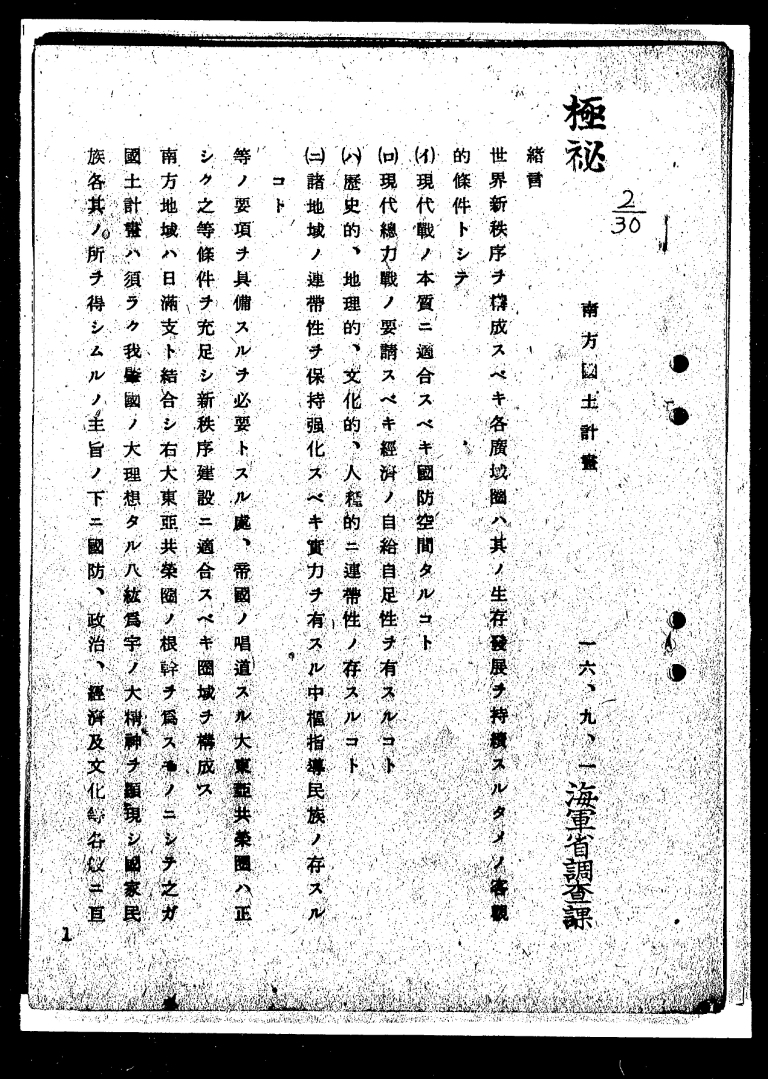 極秘
2/30
南方國土計畫
一六、九、一
海軍省調査課
緒言
世界新秩序ヲ構成スベキ各廣域圈ハ其ノ生存發展ヲ持續スルタメノ客觀
的條件トシテ
(イ)現代戰ノ本質ニ適合スベキ國防空間タルコト
(ロ)現代總力戰ノ要請スベキ經濟ノ自給自足性ヲ有スルコト
(ハ)歷史的、地理的、文化的、人種的ニ連帶性ノ存スルコト
(ニ)諸地域ノ連帶性ヲ保持强化スベキ實力ヲ有スル中樞指導民族ノ存スル
コト
等ノ要項ヲ具備スルヲ必要トスル處、帝國ノ唱道スル大東亞共榮圈ハ正
シク之等條件ヲ充足シ新秩序建設ニ適合スベキ圈域ヲ構成ス
南方地域ハ日滿支ト結合シ右大東亞共榮圈ノ根幹ヲ爲スモノニシテ之ガ
國土計畫ハ須ラク我肇國ノ大理想タル八紘爲宇ノ大精神ヲ顯現シ國家民
族各其ノ所ヲ得シムルノ主旨ノ下ニ國防、政治、經濟及文化等各般ニ亘
1